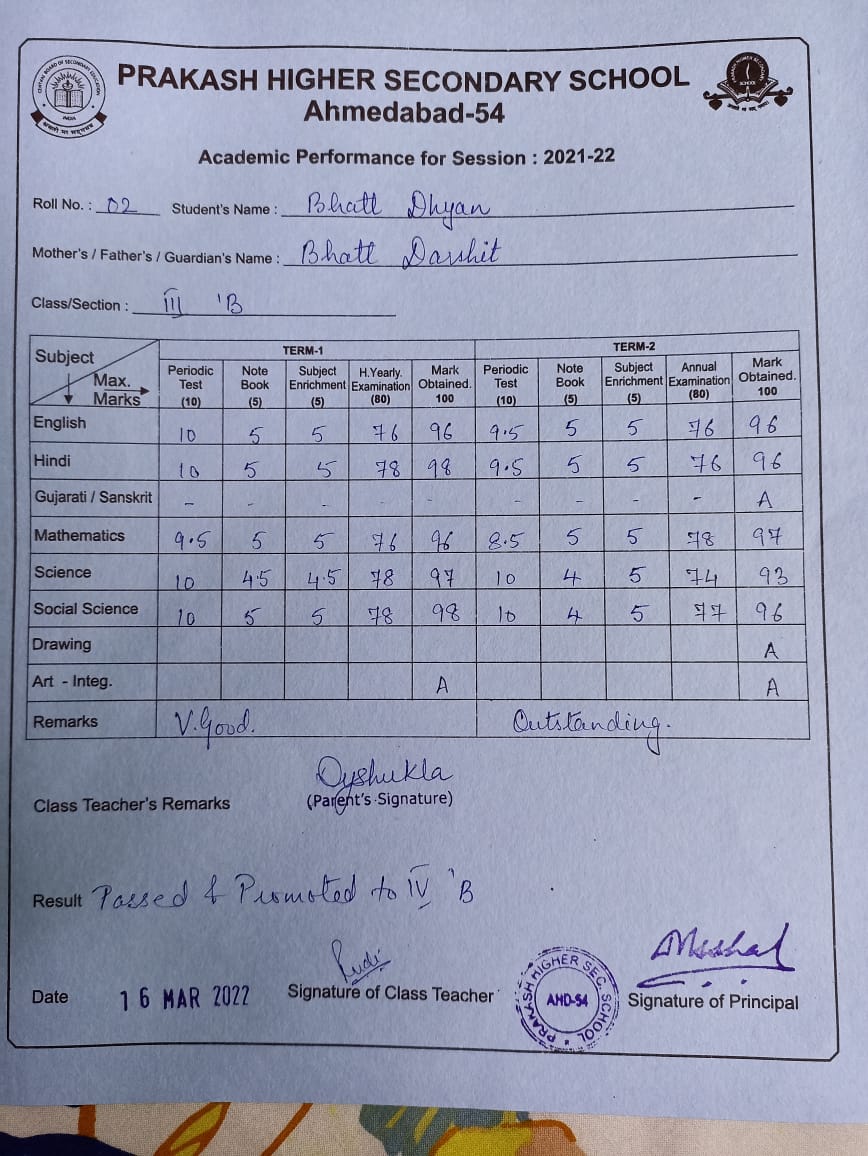 PRAKASH HIGHER SECONDARY SCHOOL
Ahmedabad-54
Academic Performance for Session : 2021-22
Roll No. : 02 Student's Name : Bhatt Dhyan
Mother's / Father's / Guardian's Name : Bhatt Darshit
Class/Section : III 'B
Subject Max. Marks TERM-1 TERM-2
Periodic Test (10) Note Book (5) Subject Enrichment (5) H.Yearly. Examination (80) Mark Obtained. 100 Periodic Test (10) Note Book (5) Subject Enrichment (5) Annual Examination (80) Mark Obtained. 100
English 10 5 5 76 96 9.5 5 5 76 96
Hindi 10 5 5 78 98 9.5 5 5 76 96
Gujarati / Sanskrit - - - - - - - - - A
Mathematics 9.5 5 5 76 96 8.5 5 5 78 97
Science 10 4.5 4.5 78 97 10 4 5 74 93
Social Science 10 5 5 78 98 10 4 5 77 96
Drawing A
Art - Integ. A A
Remarks V.Good. Outstanding.
Class Teacher's Remarks (Parent's Signature)
Result Passed & Promoted to IV 'B
Date 16 MAR 2022 Signature of Class Teacher Signature of Principal
PRAKASH HIGHER SEC. SCHOOL
AHD-54